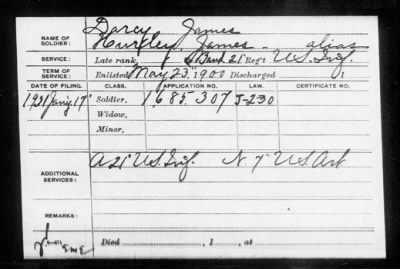 Darcy James
NAME OF SOLDIER: Hurtley, James - alias
SERVICE: Late rank, Band 21 Regt U.S. Inf.
TERM OF SERVICE: Enlisted May 23, 1900 Discharged , 1
DATE OF FILING. CLASS. APPLICATION NO. LAW. CERTIFICATE NO.
1931 17 Soldier, 1685307 J-230
Widow,
Minor,
ADDITIONAL SERVICES: A 21" U.S. Inf. N 7" U.S. Art
REMARKS:
Died , 1 , at